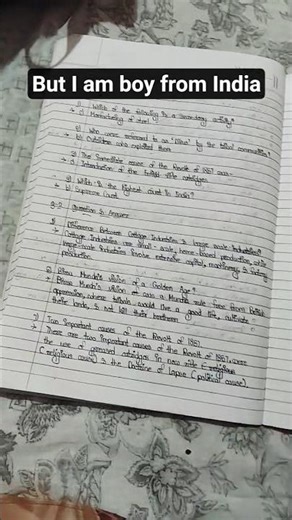 But I am boy from India
1) Which of the following is a secondary activity?
→ c) Manufacturing of steel
2) Who were referred to as 'Dikus' by the tribal communities?
→ b) Outsiders who exploited them
3) The Immediate cause of the Revolt of 1857 was-
→ Introduction of the Enfield rifle cartridges
4) Which is the highest court in India?
→ b) Supreme Court
Question & Answer
1) Difference Between Cottage Industries & Large scale Industries?
→ Cottage Industries are small-scale, home-based production while
large-scale Industries involve extensive capital, machinery & factory
production.
2) Birsa Munda's vision of a Golden Age?
→ Birsa Munda's vision of was a Munda rule free from British
oppression, where tribals could live a good life, cultivate
their lands, & not kill their brethren
3) Two Important causes of the Revolt of 1857
→ There are two important causes of the Revolt of 1857, were
the use of greased cartridges in new rifle
(religious cause) & the Doctrine of Lapse (political cause)